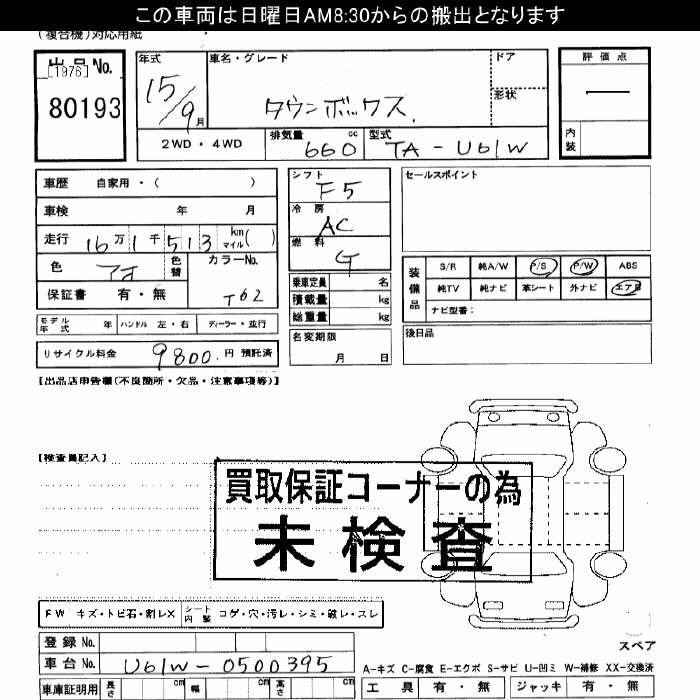 この車両は日曜日AM8:30からの搬出となります
(複合機)対応用紙
出品No. [1976] 80193
年式 15/9月
車名・グレード タウンボックス.
ドア
形状
評価点 —
内装
2WD・4WD
排気量 660 cc
型式 TA-U61W
車歴 自家用・( )
車検 年 月
走行 16万1千513 km マイル( )
色 アオ 色替 カラーNo. T62
保証書 有・無
モデル年式 年 ハンドル 左・右 ディーラー・並行
リサイクル料金 9800.円 預託済
シフト F5
冷房 AC
燃料 G
乗車定員 名
積載量 kg
総重量 kg
名変期限 月 日
セールスポイント
装備品 S/R 純A/W P/S P/W ABS
純TV 純ナビ 革シート 外ナビ エアB
ナビ型番:
後日品
【出品店申告欄(不良箇所・欠品・注意事項等)】
【検査員記入】
買取保証コーナーの為
未検査
FW キズ・トビ石・割レX シート内装 コゲ・穴・汚レ・シミ・破レ・スレ
登録No.
車台No. U61W-0500395
車庫証明用 長さ cm 幅 cm 高さ cm
スペア
A-キズ C-腐食 E-エクボ S-サビ U-凹ミ W-補修 XX-交換済
工具 有・無 ジャッキ 有・無